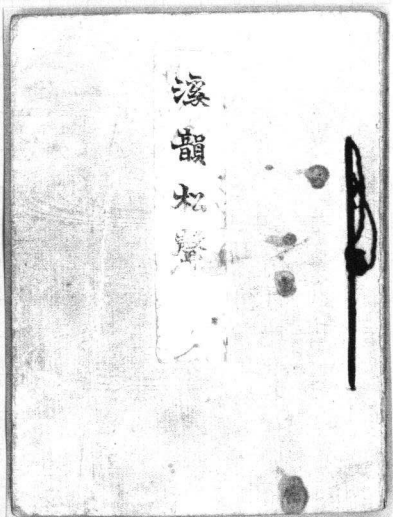 溪韻松聲